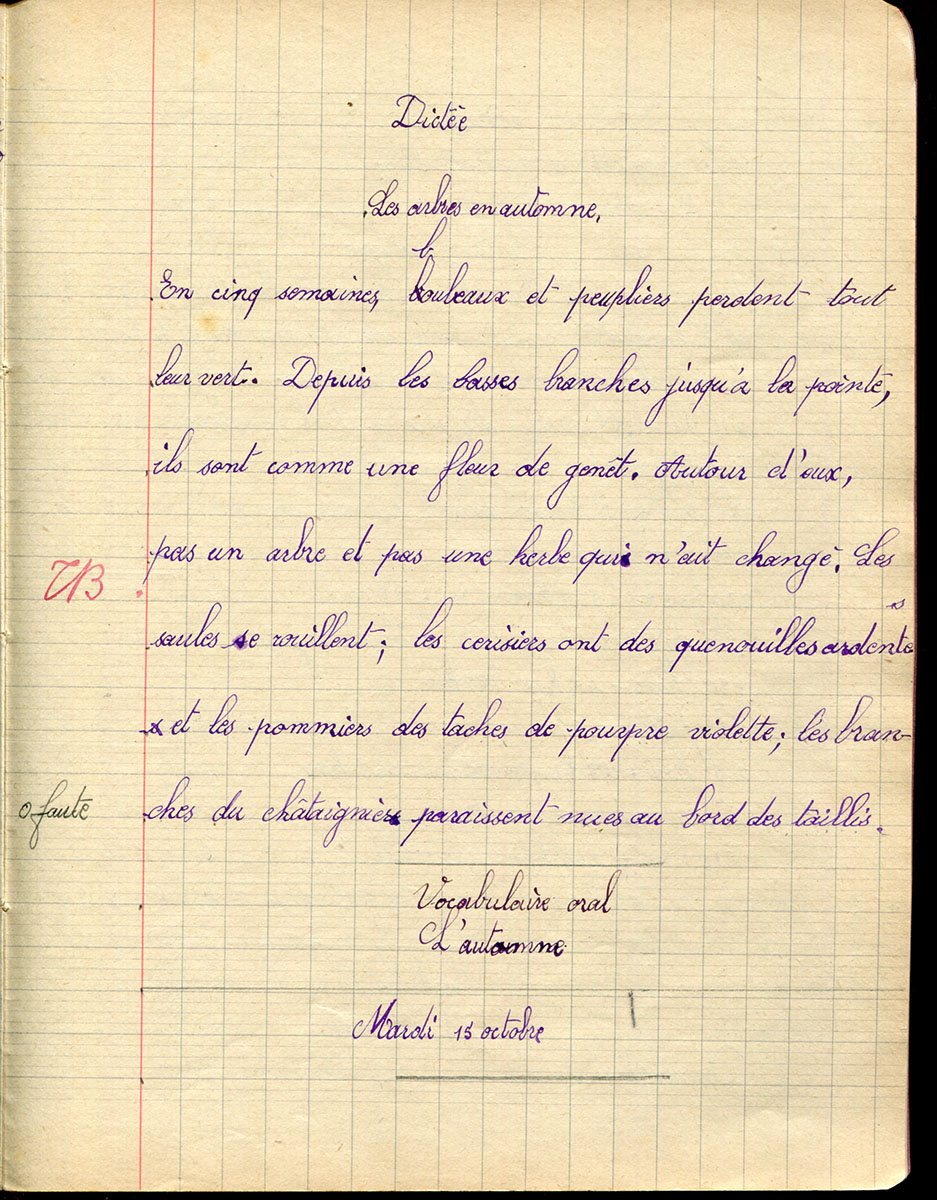 Dictée
Les arbres en automne.
b
En cinq semaines, bouleaux et peupliers perdent tout
leur vert. Depuis les basses branches jusqu'à la pointe,
ils sont comme une fleur de genêt. Autour d'eux,
pas un arbre et pas une herbe qui n'ait changé. Les
TB
s
saules se rouillent; les cerisiers ont des quenouilles ardente
et les pommiers des taches de pourpre violette; les bran-
0 faute
ches du châtaignier paraissent nues au bord des taillis.
Vocabulaire oral
L'automne
Mardi 15 octobre